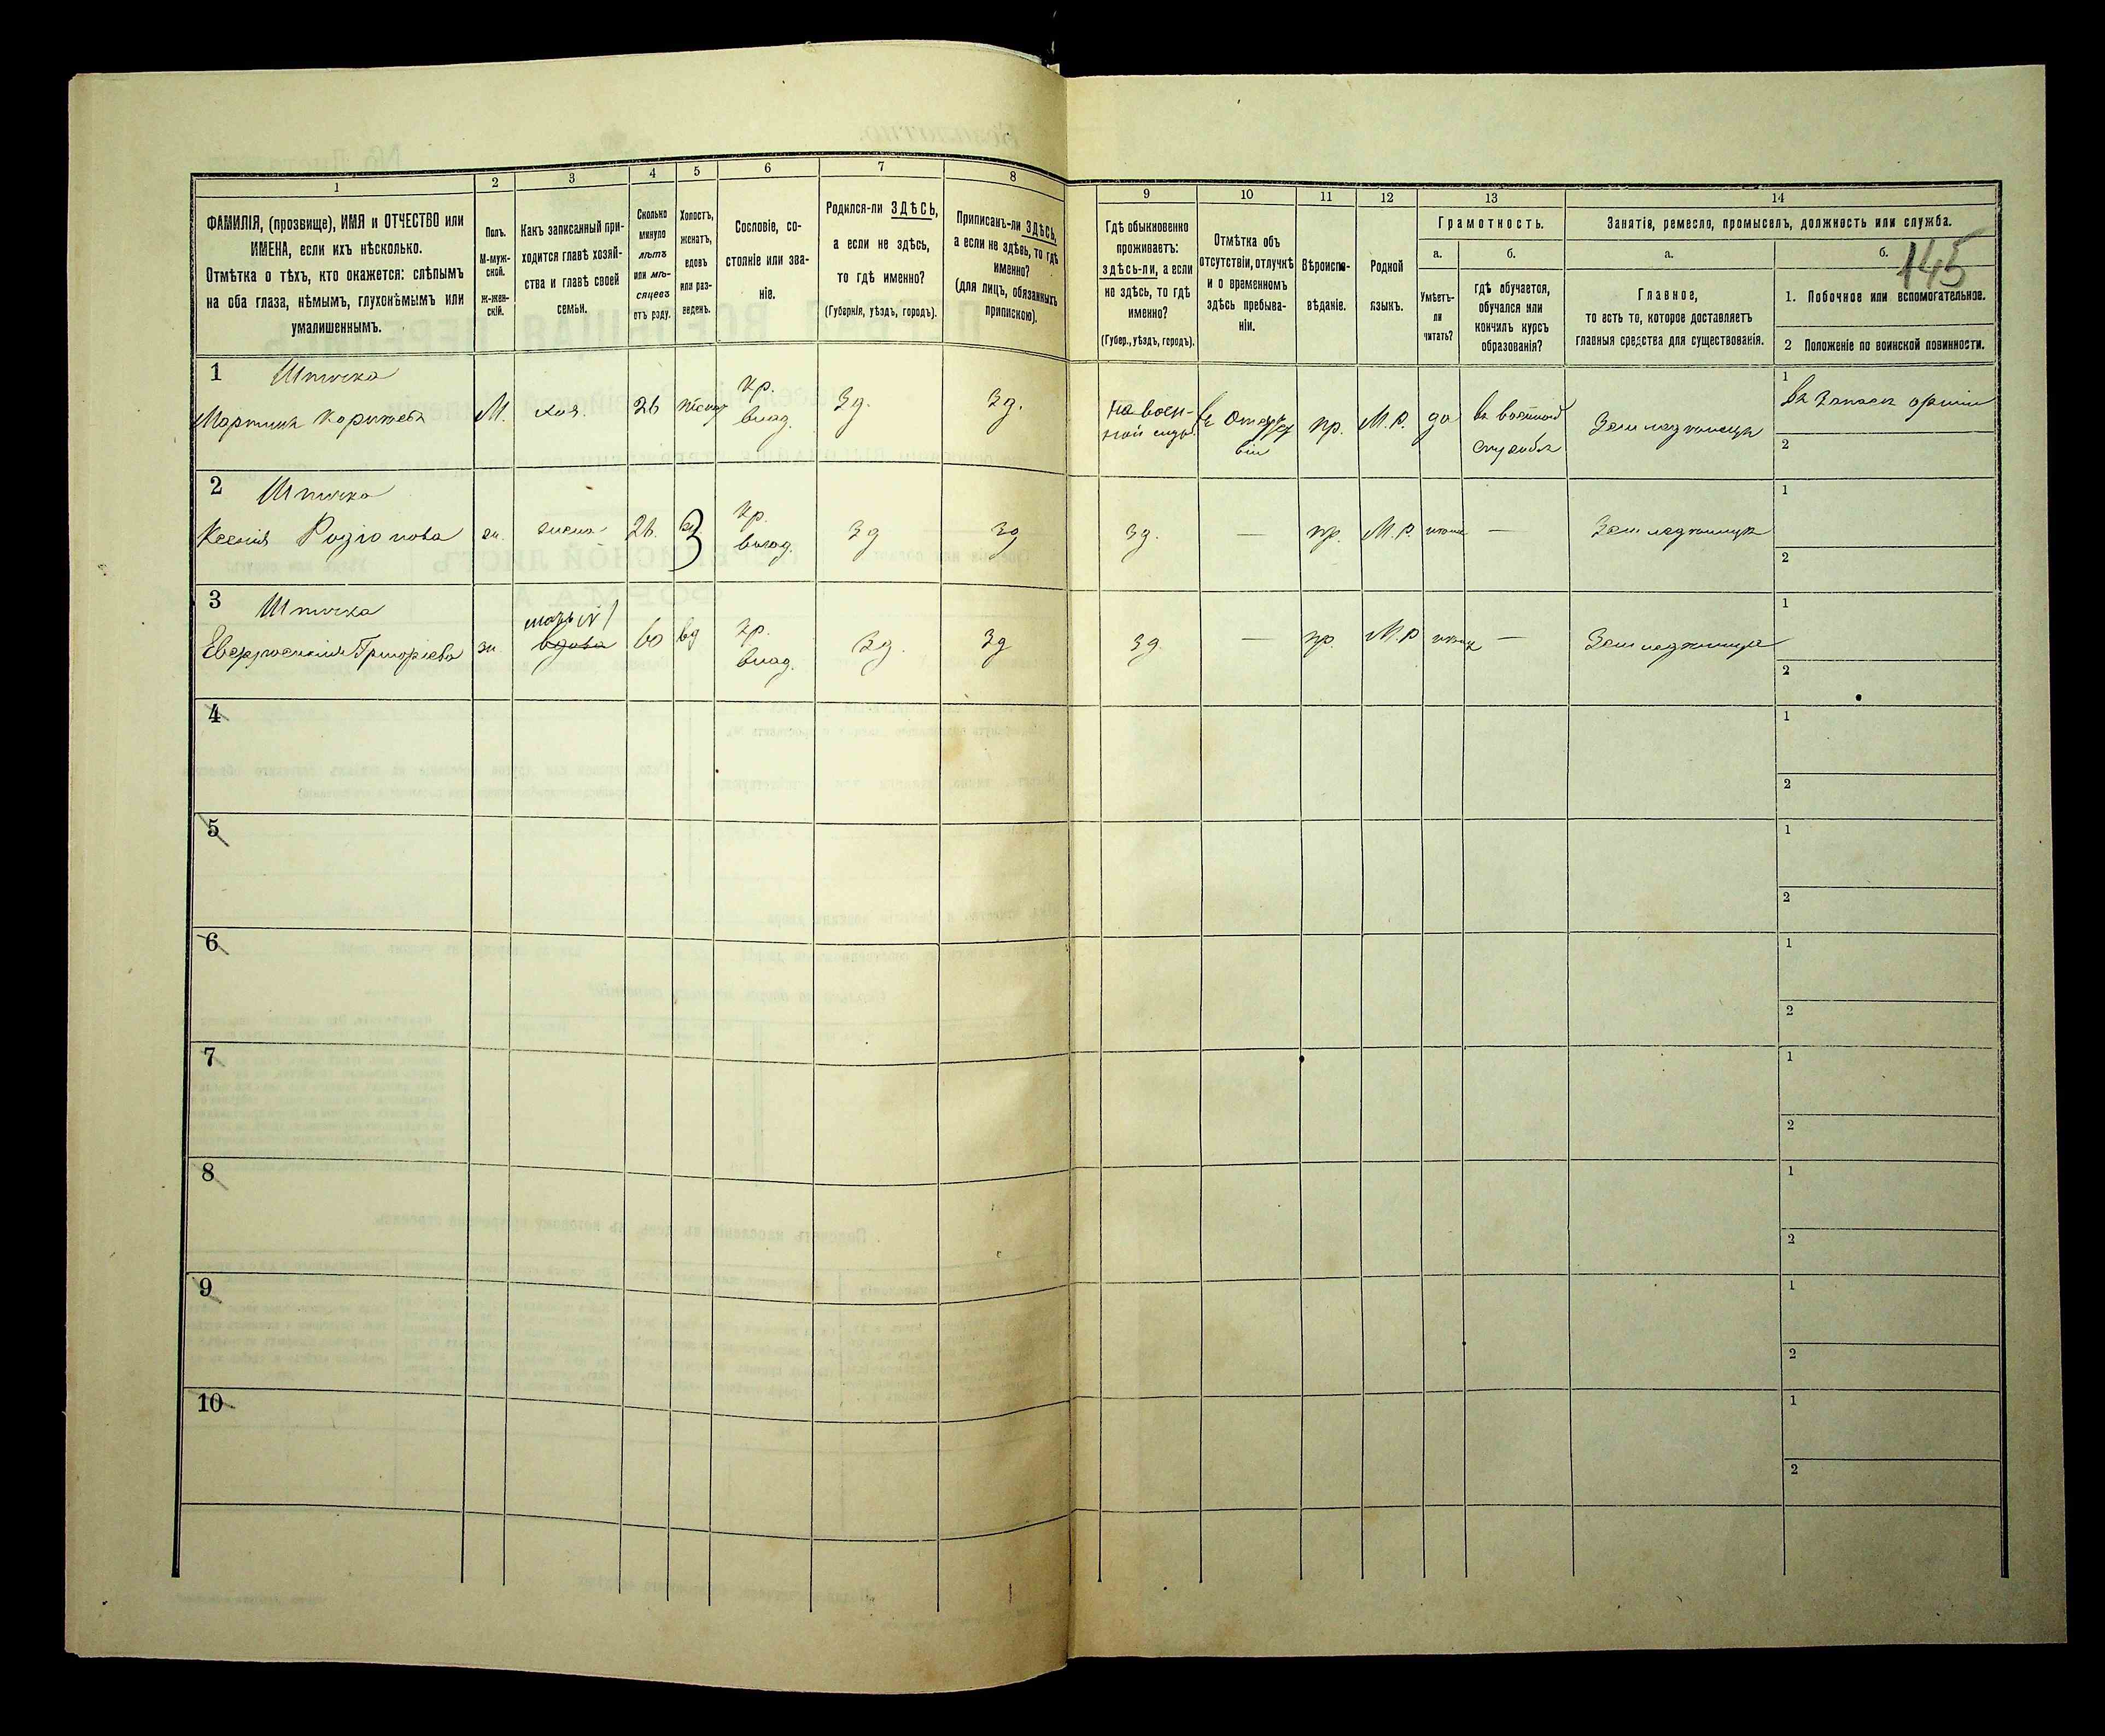 1 2 3 4 5 6 7 8 9 10 11 12 13 14
ФАМИЛІЯ, (прозвище), ИМЯ и ОТЧЕСТВО или
ИМЕНА, если ихъ нѣсколько.
Отмѣтка о тѣхъ, кто окажется: слѣпымъ
на оба глаза, нѣмымъ, глухонѣмымъ или
умалишеннымъ.
Полъ.
М-муж-
ской.
ж-жен-
скій.
Какъ записанный при-
ходится главѣ хозяй-
ства и главѣ своей
семьи.
Сколько
минуло
лѣтъ
или мѣ-
сяцевъ
отъ роду.
Холостъ,
женатъ,
вдовъ
или раз-
веденъ.
Сословіе, со-
стояніе или зва-
ніе.
Родился-ли ЗДѢСЬ,
а если не здѣсь,
то гдѣ именно?
(Губернія, уѣздъ, городъ).
Приписанъ-ли ЗДѢСЬ,
а если не здѣсь, то гдѣ
именно?
(для лицъ, обязанныхъ
припискою).
Гдѣ обыкновенно
проживаетъ:
здѣсь-ли, а если
не здѣсь, то гдѣ
именно?
(Губер., уѣздъ, городъ).
Отмѣтка объ
отсутствіи, отлучкѣ
и о временномъ
здѣсь пребыва-
ніи.
Вѣроиспо-
вѣданіе.
Родной
языкъ.
Грамотность.
а.
Умѣетъ-
ли
читать?
б.
гдѣ обучается,
обучался или
кончилъ курсъ
образованія?
Занятія, ремесло, промыселъ, должность или служба.
а.
Главное,
то есть то, которое доставляетъ
главныя средства для существованія.
б.
145
1. Побочное или вспомогательное.
2 Положеніе по воинской повинности.
1 Шпичка
М. хоз. 26 кр.
влад. Зд. Зд. на воен-
ной пр. М.Р. да въ военной
службѣ
1 въ запасѣ арміи
2
2 Шпичка
Ксенія Родіонова ж. жена 26 ж кр.
влад. Зд Зд Зд. — пр. М.Р. —
1
2
3 Шпичка
Евфросинія Григорьева ж. мать №1
вдова 60 вд кр.
влад. Зд. Зд Зд. — пр. М.Р —
1
2
4 1
2
5 1
2
6 1
2
7 1
2
8 1
2
9 1
2
10 1
2